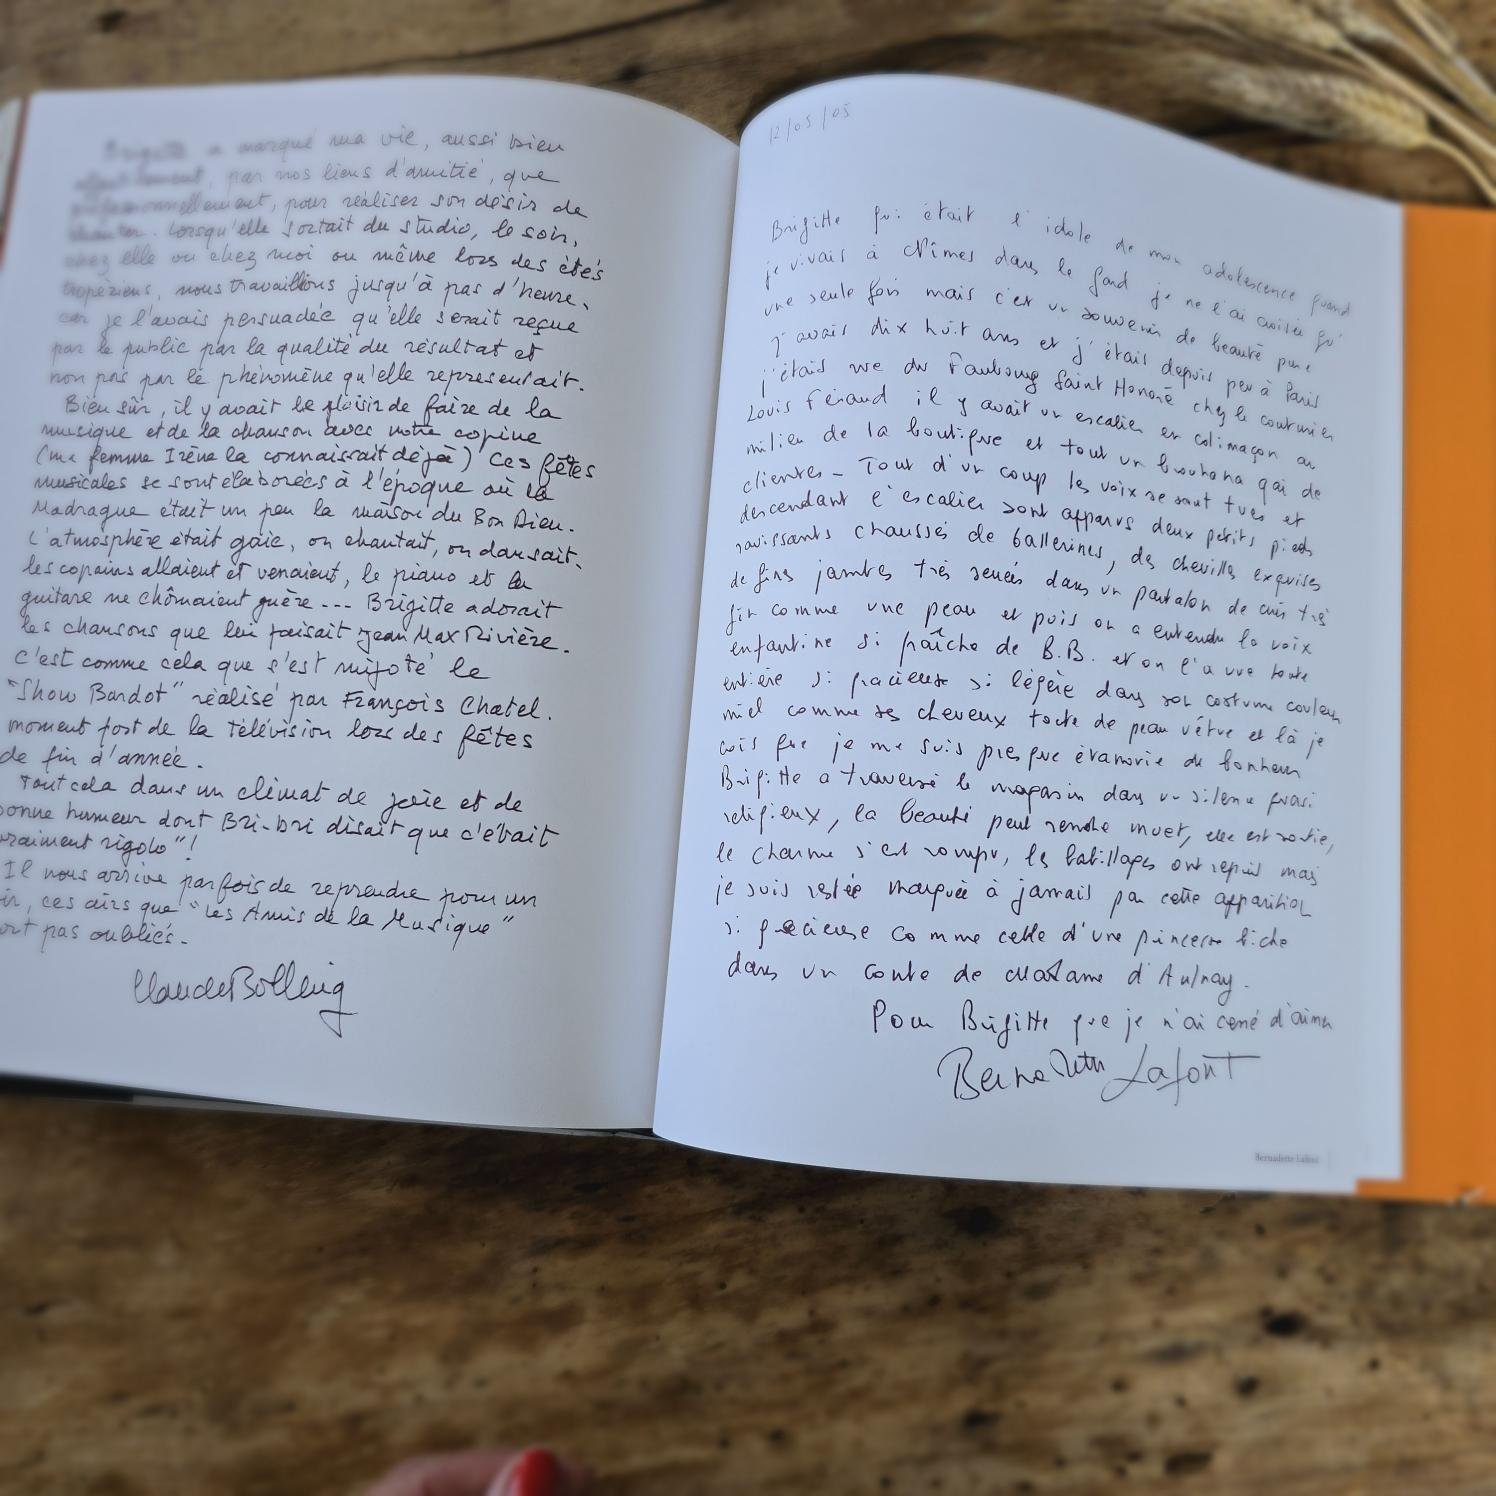 Brigitte a marqué ma vie, aussi bien
affectivement, par nos liens d'amitié, que
professionnellement, pour réaliser son désir de
chanter. Lorsqu'elle sortait du studio, le soir,
chez elle ou chez moi ou même lors des étés
tropéziens, nous travaillions jusqu'à pas d'heure,
car je l'avais persuadée qu'elle serait reçue
par le public par la qualité du résultat et
non pas par le phénomène qu'elle représentait.
Bien sûr, il y avait le plaisir de faire de la
musique et de la chanson avec notre copine
(ma femme Irène la connaissait déjà) Ces fêtes
musicales se sont élaborées à l'époque où la
Madrague était un peu la maison du Bon Dieu.
L'atmosphère était gaie, on chantait, on dansait,
les copains allaient et venaient, le piano et la
guitare ne chômaient guère --- Brigitte adorait
les chansons que lui faisait Jean Max Rivière.
C'est comme cela que s'est mijoté le
"Show Bardot" réalisé par François Chatel.
moment fort de la télévision lors des fêtes
de fin d'année.
Tout cela dans un climat de joie et de
bonne humeur dont Bri-bri disait que c'était
vraiment rigolo"!
Il nous arrive parfois de reprendre pour un
, ces airs que "Les Amis de la Musique"
ont pas oubliés.
Claude Bolling
12/05/05
Brigitte qui était l'idole de mon adolescence quand
je vivais à Nîmes dans le Gard je ne l'ai croisée qu'
une seule fois mais c'est un souvenir de beauté pure
j'avais dix huit ans et j'étais depuis peu à Paris
j'étais rue du Faubourg Saint Honoré chez le couturier
Louis Féraud il y avait un escalier en colimaçon au
milieu de la boutique et tout un brouhaha gai de
clientes - Tout d'un coup les voix se sont tues et
descendant l'escalier sont apparus deux petits pieds
ravissants chaussés de ballerines, des chevilles exquises
de fines jambes très serrées dans un pantalon de cuir très
fin comme une peau et puis on a entendu la voix
enfantine si fraîche de B.B. et on l'a vue toute
entière si gracieuse si légère dans son costume couleur
miel comme ses cheveux toute de peau vêtue et là je
crois que je me suis presque évanouie de bonheur
Brigitte a traversé le magasin dans un silence quasi
religieux, la beauté peut rendre muet, elle est sortie,
le charme s'est rompu, les babillages ont repris mais
je suis restée marquée à jamais par cette apparition
si gracieuse comme celle d'une princesse biche
dans un conte de Madame d'Aulnay.
Pour Brigitte que je n'ai cessé d'aimer
Bernadette Lafont
Bernadette Lafont